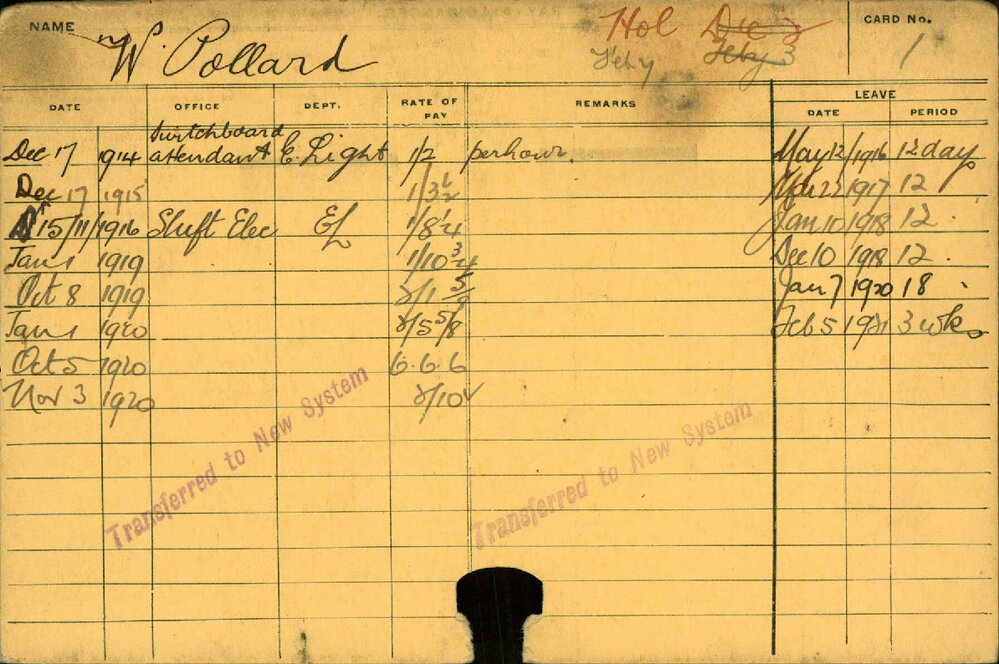 NAME W. Pollard Hol Dec 2 CARD No. 1
Feby Feby 3
DATE OFFICE DEPT. RATE OF PAY REMARKS LEAVE
DATE PERIOD
Switchboard
Dec 17 1914 attendant E. Light 1/2 per hour. May 12/1916 12 day
Dec 17 1915 1/3½ 1917 12
15/11/1916 Shift Elec EL 1/8¼ Jan 10 1918 12.
Jan 1 1919 1/10¾ Dec 10 1918 12.
Oct 8 1919 2/1 Jan 7 1920 18
Jan 1 1920 2/5 5/8 Feb 5 1921 3 wks
Oct 5 1920 6.6.6
Nov 3 1920 2/10
Transferred to New System
Transferred to New System